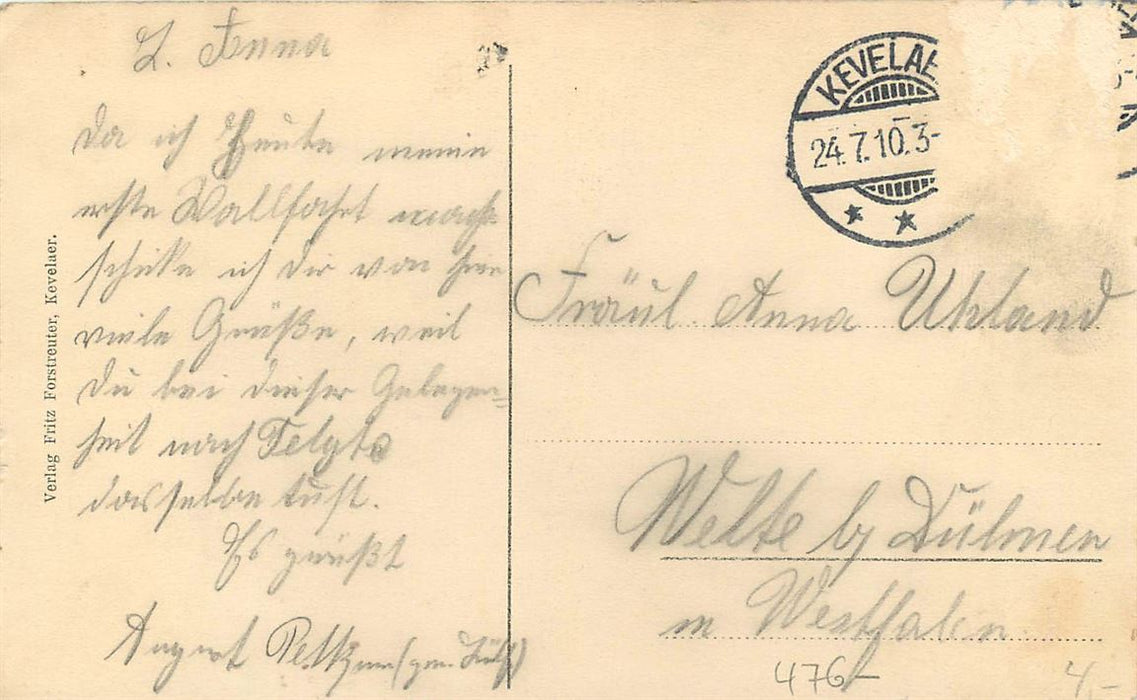 L. Anna
Da ich Heute meine
erste Wallfahrt mache
schicke ich Dir von hier
viele Grüße, weil
Du bei dieser Gelegen=
heit nach Telgte
dasselbe tust.
Es grüßt
August
Verlag Fritz Forstreuter, Kevelaer.
KEVELAE
24.7.10.3-
Fräul Anna Uhland
Welte b/ Dülmen
in Westfalen.
476-
4-